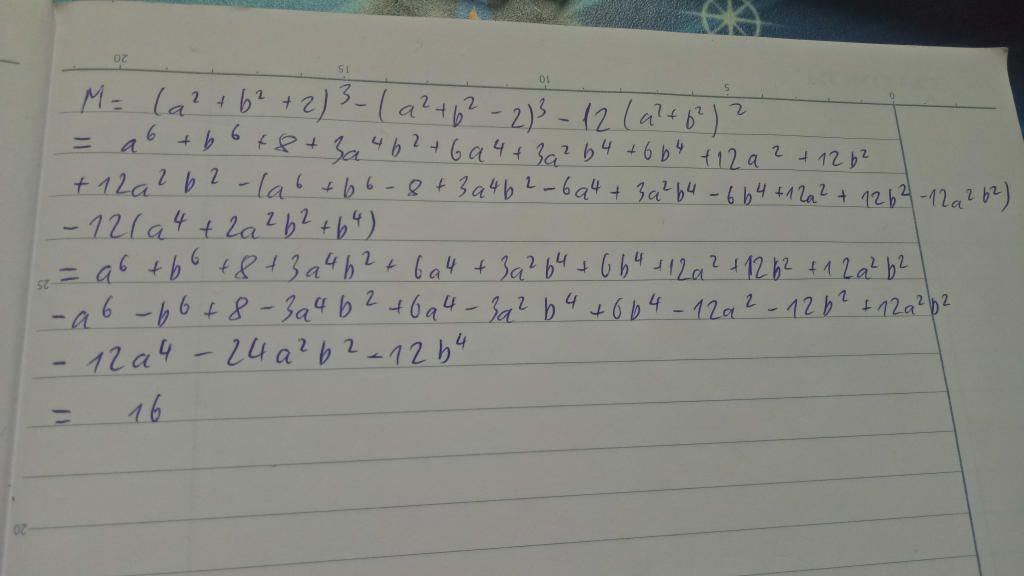 20 15 10 5 0
M = (a² + b² + 2)³ - (a² + b² - 2)³ - 12 (a² + b²)²
= a⁶ + b⁶ + 8 + 3a⁴b² + 6a⁴ + 3a²b⁴ + 6b⁴ + 12a² + 12b²
+ 12a²b² - (a⁶ + b⁶ - 8 + 3a⁴b² - 6a⁴ + 3a²b⁴ - 6b⁴ + 12a² + 12b² - 12a²b²)
- 12(a⁴ + 2a²b² + b⁴)
25
= a⁶ + b⁶ + 8 + 3a⁴b² + 6a⁴ + 3a²b⁴ + 6b⁴ + 12a² + 12b² + 12a²b²
- a⁶ - b⁶ + 8 - 3a⁴b² + 6a⁴ - 3a²b⁴ + 6b⁴ - 12a² - 12b² + 12a²b²
- 12a⁴ - 24a²b² - 12b⁴
= 16
20